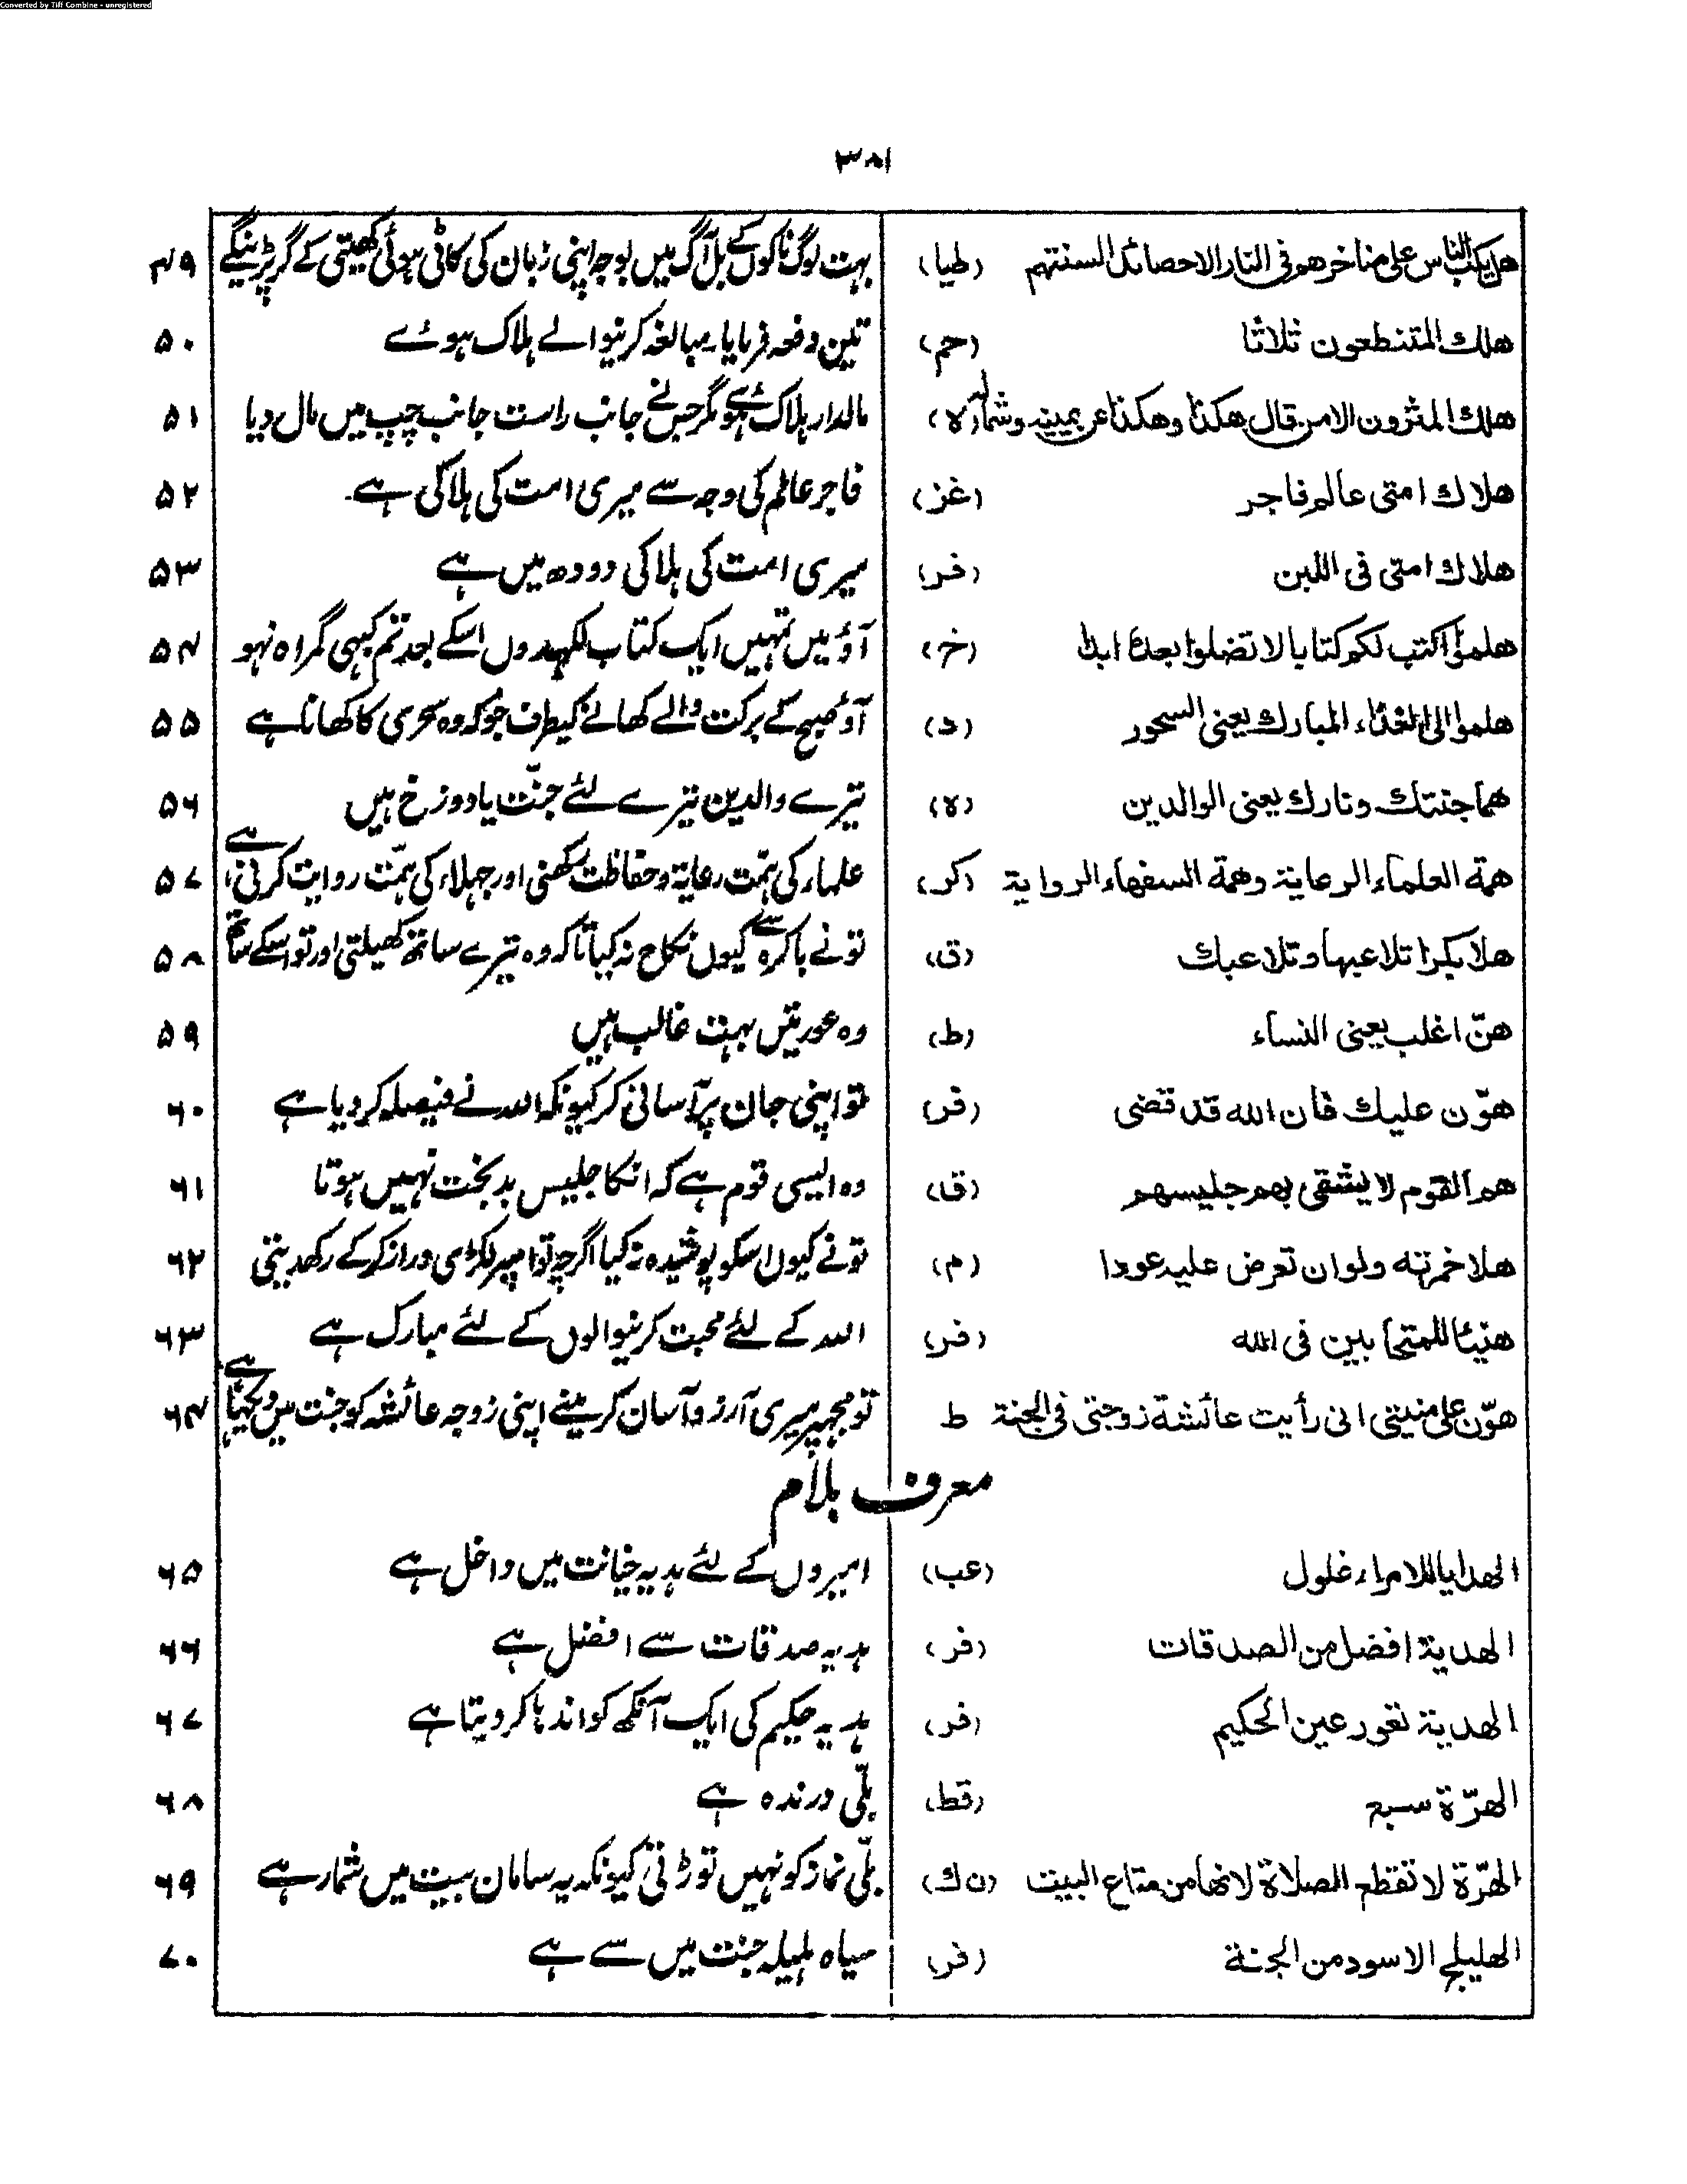 Converted by Tiff Combine - unregistered
۳۸۱
هل يكب الناس على مناخرهم فى النار الاحصائل السنتهم (طيا) بہت لوگ ناکوں کے بل آگ میں بوجہ اپنی زبان کی کاٹی ہوئی کھیتی کے گر پڑینگے ۴۹
هلك المتنطعون ثلاثا (حم) تین دفعہ فرمایا مبالغہ کرنیوالے ہلاک ہوئے ۵۰
هلك المثرون الامن قال هكذا وهكذا عن يمينه وشماله (ه) مالدار ہلاک ہوئے مگر جس نے جانب راست جانب چپ میں مال دیا ۵۱
هلاك امتى عالم فاجر (غز) فاجر عالم کی وجہ سے میری امت کی ہلاکی ہے ۵۲
هلاك امتى فى اللبن (فر) میری امت کی ہلاکی دودھ میں ہے ۵۳
هلموا اكتب لكم كتابا لا تضلوا بعده ابدا (خ) آؤ میں تمہیں ایک کتاب لکھدوں اسکے بعد تم کبہی گمراہ نہو ۵۴
هلموا الى الغذاء المبارك يعنى السحور (د) آؤ صبح کے برکت والے کھانے کیطرف جو کہ وہ سحری کا کھانا ہے ۵۵
هما جنتك ونارك يعنى الوالدين (ه) تیرے والدین تیرے لئے جنّت یا دوزخ ہیں ۵۶
همة العلماء الرعاية وهمة السفهاء الرواية (كر) علماء کی ہمّت رعایۃ وحفاظت رکھنی اور جہلاء کی ہمّت روایت کرنی ہے ۵۷
هلا بكرا تلاعبها وتلاعبك (ق) تونے باکرہ سے کیوں نکاح نہ کیا تاکہ وہ تیرے ساتھ کھیلتی اور تو اسکے ساتھ ۵۸
هنّ اغلب يعنى النساء (ط) وہ عورتیں بہت غالب ہیں ۵۹
هوّن عليك فان الله قد قضى (فر) تو اپنی جان پر آسانی کر کیونکہ اللہ نے فیصلہ کر دیا ہے ۶۰
هم القوم لا يشقى بهم جليسهم (قا) وہ ایسی قوم ہے کہ انکا جلیس بدبخت نہیں ہوتا ۶۱
هلا خمرته ولو ان تعرض عليه عودا (م) تونے کیوں اسکو پوشیدہ نہ کیا اگرچہ تو اسپر لکڑی دراز کرکے رکھدیتی ۶۲
هنيئا للمتحابين فى الله (فر) اللہ کے لئے محبت کرنیوالوں کے لئے مبارک ہے ۶۳
هوّن على منيتى انى رأيت عائشة زوجتى فى الجنة ط تو مجہپر میری آرزو آسان کر مینے اپنی زوجہ عائشہ کو جنت میں دیکھا ہے ۶۴
معرف بلام
الهدايا للامراء غلول (عب) امیروں کے لئے ہدیہ خیانت میں داخل ہے ۶۵
الهدية افضل من الصدقات (فر) ہدیہ صدقات سے افضل ہے ۶۶
الهدية تعور عين الحكيم (فر) ہدیہ حکیم کی ایک آنکھ کو اندہا کر دیتا ہے ۶۷
الهرّة سبع (قط) بلّی درندہ ہے ۶۸
الهرّة لا تقطع الصلاة لانها من متاع البيت (ه ك) بلّی نماز کو نہیں توڑتی کیونکہ یہ سامان بیت میں شمار ہے ۶۹
الهليلج الاسود من الجنة (فر) سیاہ ہلیلہ جنت میں سے ہے ۷۰